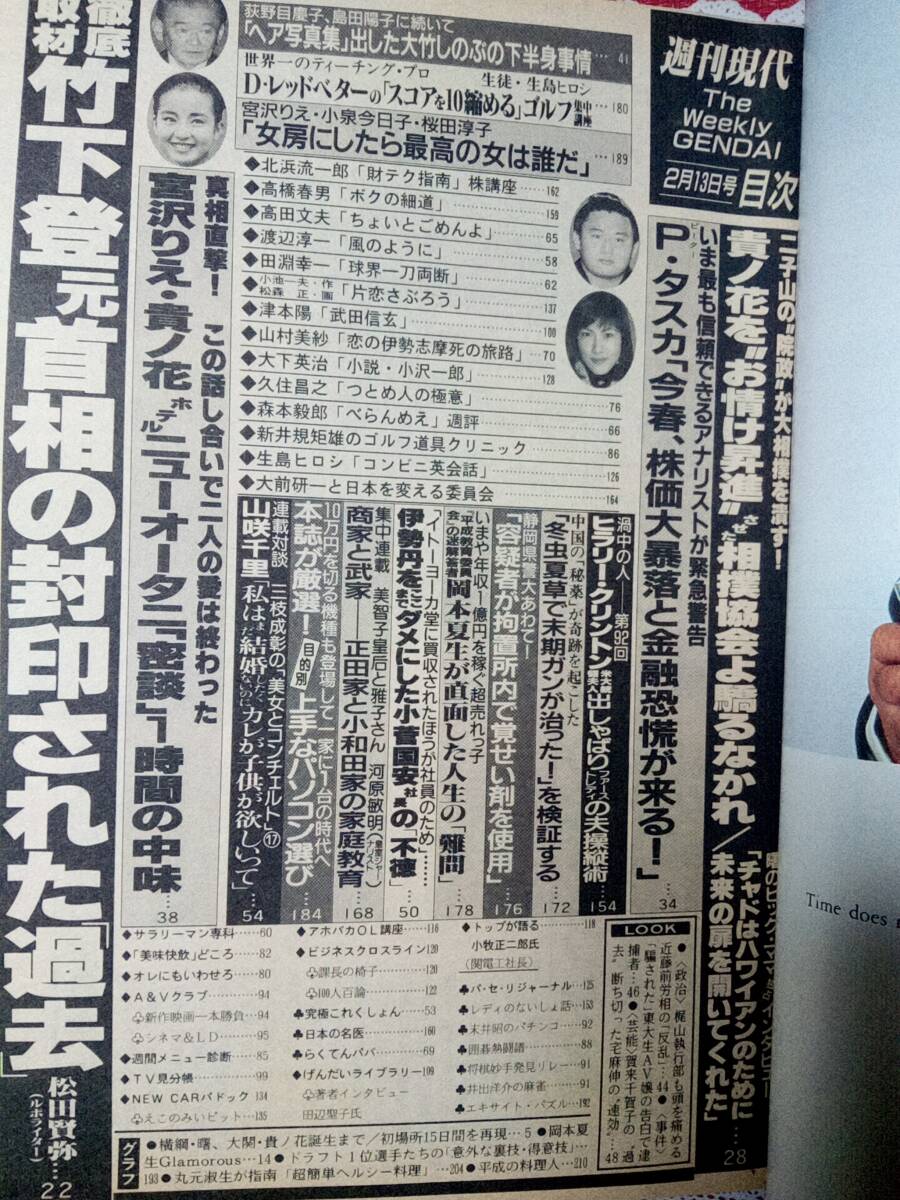 週刊現代
The
Weekly
GENDAI
2月13日号 目次
二子山の〝院政〟が大相撲を潰す!
貴ノ花を〝お情け昇進〟させた相撲協会よ驕るなかれ/
「チャドはハワイアンのために
未来の扉を開いてくれた」
28
いま最も信頼できるアナリストが緊急警告
P・タスカ「今春、株価大暴落と金融恐慌が来る!」
ピーター
34
荻野目慶子、島田陽子に続いて
「ヘア写真集」出した大竹しのぶの下半身事情…41
世界一のティーチング・プロ 生徒・生島ヒロシ
D・レッドベターの「スコアを10縮める」ゴルフ集中講座…180
宮沢りえ・小泉今日子・桜田淳子
「女房にしたら最高の女は誰だ」…189
◆北浜流一郎「財テク指南」株講座……162
◆高橋春男「ボクの細道」……159
◆高田文夫「ちょいとごめんよ」……65
◆渡辺淳一「風のように」……58
◆田淵幸一「球界一刀両断」……62
◆小池一夫・作 松森正・画「片恋さぶろう」……137
◆津本陽「武田信玄」……100
◆山村美紗「恋の伊勢志摩死の旅路」……70
◆大下英治「小説・小沢一郎」……128
◆久住昌之「つとめ人の極意」……76
◆森本毅郎「べらんめえ」週評……66
◆新井規矩雄のゴルフ道具クリニック……86
◆生島ヒロシ「コンビニ英会話」……126
◆大前研一と日本を変える委員会……164
渦中の人―第92回
ヒラリー・クリントン 出しゃばりファーストレディの夫操縦術
…154
中国の「秘薬」が奇跡を起こした
「冬虫夏草で末期ガンが治った!」を検証する
…172
静岡県警大あわて―
「容疑者が拘置所内で覚せい剤を使用」
…176
いまや年収1億円を稼ぐ超売れっ子
「平成教育委員会」の迷解答者 岡本夏生が直面した人生の「難問」
…178
「イトーヨーカ堂に買収されたほうが社員のため」……
伊勢丹をここまでダメにした小菅国安社長の「不徳」
…50
集中連載 美智子皇后と雅子さん 河原敏明(皇室ジャーナリスト)
商家と武家――正田家と小和田家の家庭教育
…168
10万円を切る機種も登場して一家に1台の時代へ
本誌が厳選! 目的別 上手なパソコン選び
…184
連載対談 三枝成彰の「美女とコンチェルト」⑰
山咲千里「私はまだ結婚したくないのに、カレが子供が欲しいって」
…54
真相直撃! この話し合いで二人の愛は終わった
宮沢りえ・貴ノ花 ホテルニューオータニ「密談」1時間の中味
38
徹底取材 竹下登元首相の封印された「過去」
松田賢弥(ルポライター)…
22
◆サラリーマン専科……60
◆「美味快飲」どころ……82
◆オレにもいわせろ……80
◆A&Vクラブ……94
♧新作映画一本勝負…94
♧シネマ&LD……95
◆週間メニュー診断……85
◆TV見分帳……99
◆NEW CARパドック 134
♧えこのみいピット…135
◆アホバカOL講座…116
◆ビジネスクロスライン 120
♧課長の椅子……120
♧100人百論……122
♣究極これくしょん…53
♣日本の名医……160
♣らくてんパパ……69
♣げんだいライブラリー 109
♧著者インタビュー
田辺聖子氏
◆トップが語る……118
小牧正二郎氏
(関電工社長)
♣パ・セ・リジャーナル…125
♣レディのないしょ話…153
♣末井昭のパチンコ…92
♣囲碁熱闘譜……88
♣将棋妙手発見リレー…91
♣井出洋介の麻雀…91
♣エキサイト・パズル…192
LOOK
●〈政治〉梶山執行部も頭を痛める
近藤前労相の「反乱」…44●〈事件〉
「騙された」東大生AV嬢の告白で逮
捕者…46●〈芸能〉賀来千賀子の〝過
去〟断ち切った宅麻伸の〝速効〟…48
グラフ
●横綱・曙、大関・貴ノ花誕生まで/初場所15日間を再現…5●岡本夏
生Glamorous…14●ドラフト1位選手たちの「意外な裏技・得意技」
193●丸元淑生が指南「超簡単ヘルシー料理」…204●平成の料理人…210
Time does